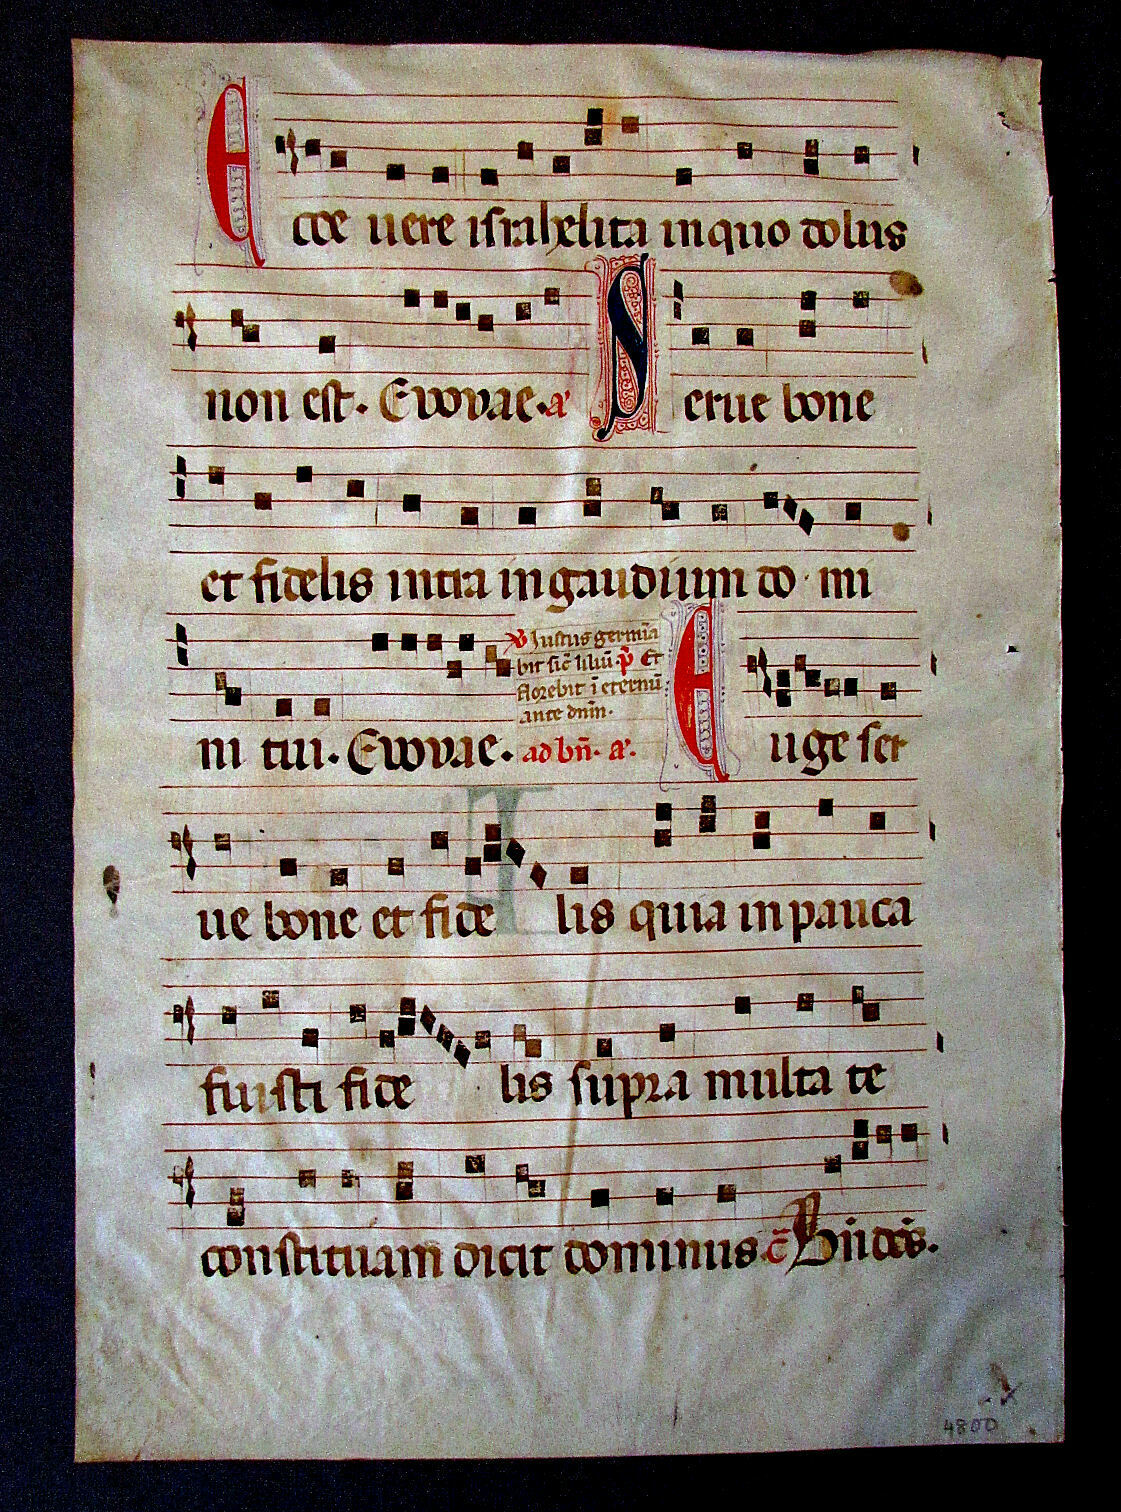 Ecce uere israhelita in quo dolus
non est. Euouae. a͞ Serue bone
et fidelis intra in gaudium do mi
ni tui. Euouae.
℣ Iustus germīa
bit sic̄ liliū p̄ Et
florebit ī eternū
ante dn̄m.
ad bn̄. a͞. Euge ser
ue bone et fide lis quia in pauca
fuisti fide lis supra multa te
constituam dicit dominus c̄ Bn̄dc̄s.
4800